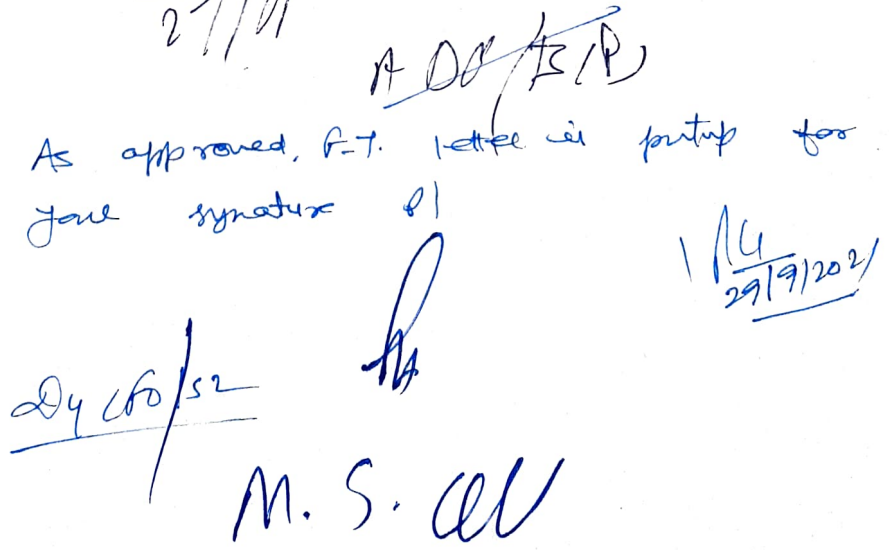 ADO/B(P)
As approved, F.T. letter is putup for
your synature pl
29/9/2021
Dy CFO/S2
M. S.